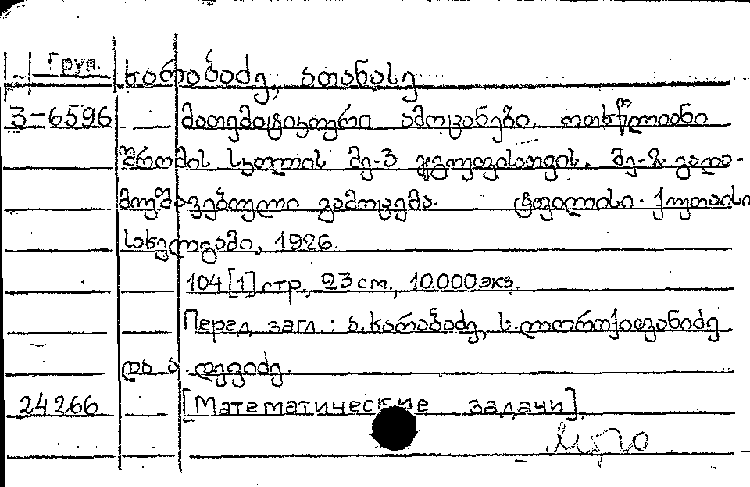 Груз.
ხარაბაძე, ათანასე
3-6596 მათემატიკური ამოცანები ოთხწლიანი
შრომის სკოლის მე-3 ჯგუფისათვის. მე-2 გადა-
მუშავებული გამოცემა. ტფილისი-ქუთაისი
სახელგამი, 1926.
104 [1] стр., 23 cm., 10.000 экз.
Перед загл.: ა. ხარაბაძე, ს. ლორთქიფანიძე
და ა დევიძე.
24266 [Математические задачи].